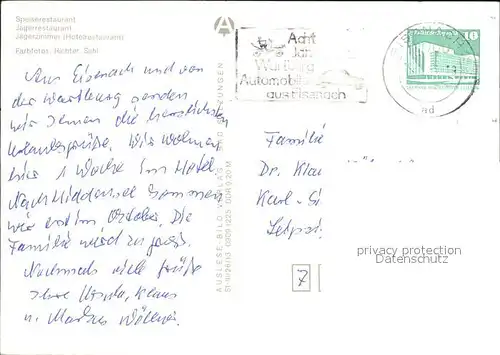 Speiserestaurant
Jägerrestaurant
Jägerzimmer (Hotelrestaurant)
Farbfotos: Richter, Suhl
A
Acht
Jahre
Wartburg
Automobile
aus Eisenach
10
Aus Eisenach und von
der Wartburg senden
wir Ihnen die herzlichsten
Urlaubsgrüße. Wir wohnen
hier 1 Woche im Hotel.
Nach Hiddensee kommen
wir erst im Oktober. Die
Familie wird zu groß.
Nochmals viele Grüße
Ihre Ursula, Klaus
u. Markus
AUSLESE-BILD-VERLAG BAD SALZUNGEN
Familie
Dr. Klau
Karl-
Leipzi
privacy protection
Datenschutz
7